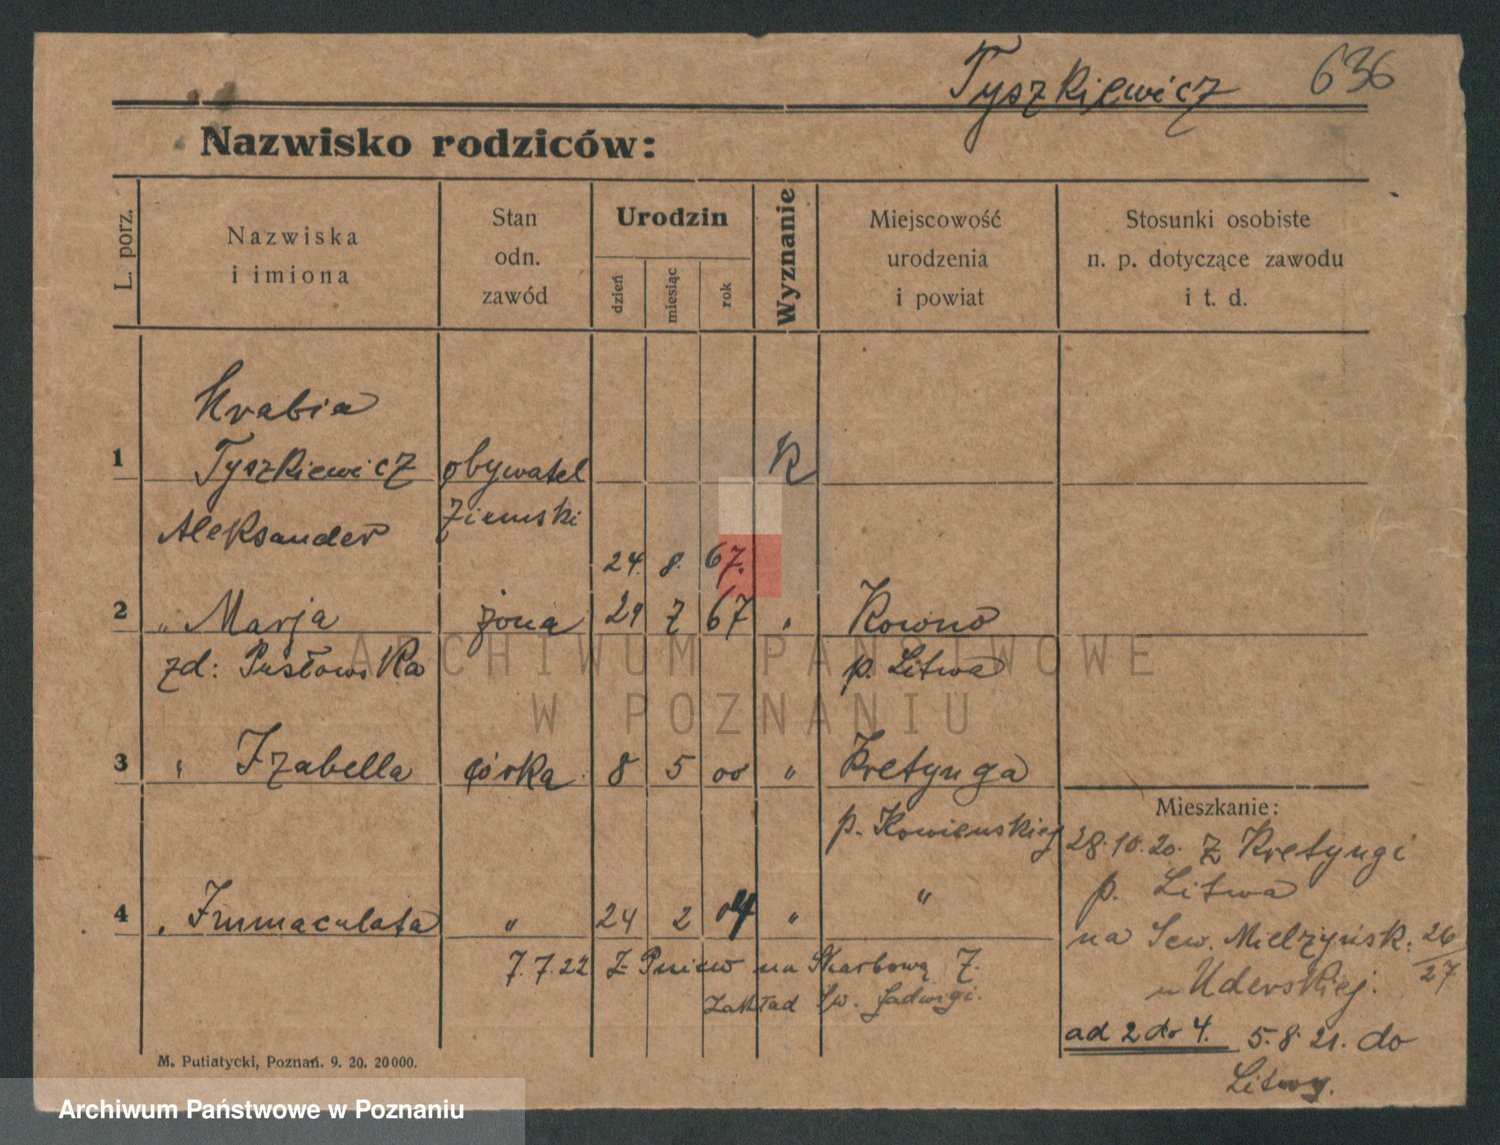 Tyszkiewicz 636
Nazwisko rodziców:
L. porz.
Nazwiska
i imiona
Stan
odn.
zawód
Urodzin
dzień
miesiąc
rok
Wyznanie
Miejscowość
urodzenia
i powiat
Stosunki osobiste
n. p. dotyczące zawodu
i t. d.
Hrabia
1 Tyszkiewicz obywatel K
Aleksander ziemski
24. 8. 67.
2 " Marja żona 29 7 67 " Kowno
zd: Pusłowska p. Litwa
3 " Izabella córka 8 5 00 " Kretynga
p. Kowienskiej
4 " Immaculata " 24 2 04 " "
7.7.22 z Pniew na Skarbową 7.
Zakład Św. Jadwigi.
Mieszkanie:
28.10.20. z Kretyngi
p. Litwa
na Sew. Mielżyńsk. 26/27
u Uderskiej.
ad 2 do 4. 5.8.21. do
Litwy.
M. Putiatycki, Poznań. 9. 20. 20000.
ARCHIWUM PAŃSTWOWE
W POZNANIU
Archiwum Państwowe w Poznaniu